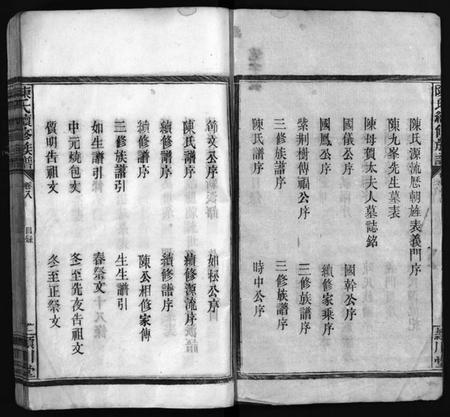 陳氏續修族譜
陳氏源流歷朝旌表義門序
陳九峯先生墓表
陳母賀太夫人墓誌銘
國儀公序
國幹公序
國鳳公序
續修家乘序
紫荆樹傳福公序
三修族譜序
三修族譜序
三修族譜序
陳氏譜序
時中公序
如松公序
陳氏譜序
續修源流序
續修譜序
續修譜序
續修譜序
陳公相修家傳
三修族譜引
生生譜引
如生譜引
春祭文
中元燒包文
冬至先夜告祖文
質明告祖文
冬至正祭文
陳氏續修族譜
卷八
目錄